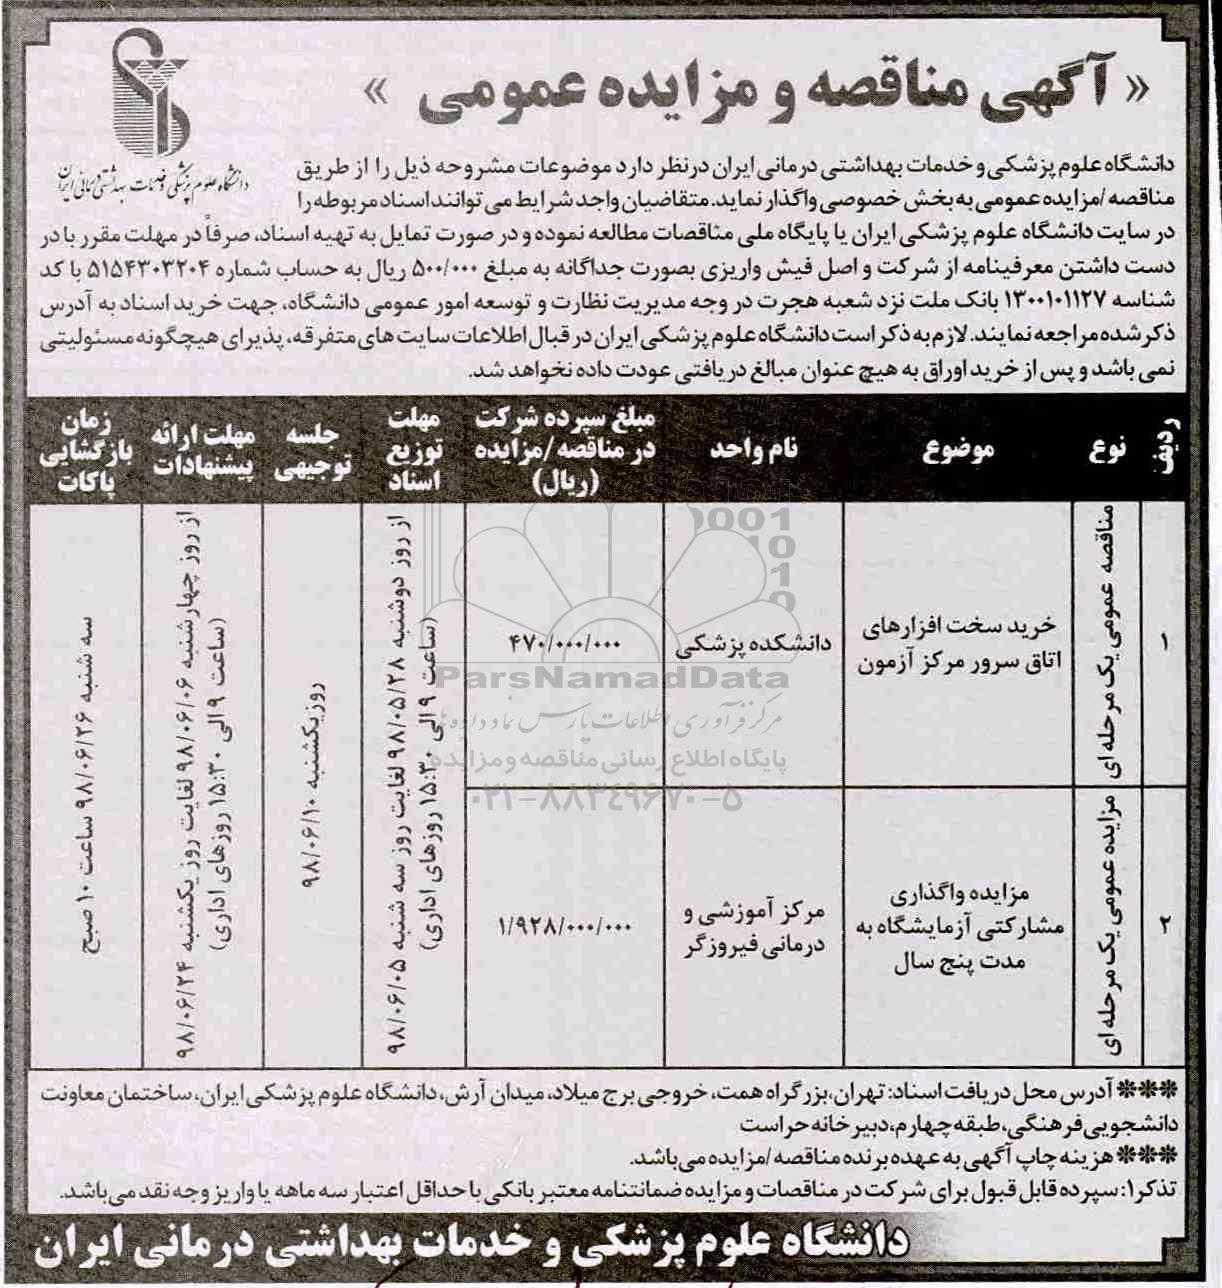 « آگهی مناقصه و مزایده عمومی »
دانشگاه علوم پزشکی و خدمات بهداشتی درمانی ایران
دانشگاه علوم پزشکی و خدمات بهداشتی درمانی ایران درنظر دارد موضوعات مشروحه ذیل را از طریق
مناقصه/مزایده عمومی به بخش خصوصی واگذار نماید. متقاضیان واجد شرایط می توانند اسناد مربوطه را
در سایت دانشگاه علوم پزشکی ایران یا پایگاه ملی مناقصات مطالعه نموده و در صورت تمایل به تهیه اسناد، صرفاً در مهلت مقرر با در
دست داشتن معرفینامه از شرکت و اصل فیش واریزی بصورت جداگانه به مبلغ ۵۰۰/۰۰۰ ریال به حساب شماره ۵۱۵۴۳۰۳۲۰۴ با کد
شناسه ۱۳۰۰۱۰۱۱۲۷ بانک ملت نزد شعبه هجرت در وجه مدیریت نظارت و توسعه امور عمومی دانشگاه، جهت خرید اسناد به آدرس
ذکر شده مراجعه نمایند. لازم به ذکر است دانشگاه علوم پزشکی ایران در قبال اطلاعات سایت های متفرقه، پذیرای هیچگونه مسئولیتی
نمی باشد و پس از خرید اوراق به هیچ عنوان مبالغ دریافتی عودت داده نخواهد شد.
ردیف
نوع
موضوع
نام واحد
مبلغ سپرده شرکت
در مناقصه/مزایده
(ریال)
مهلت
توزیع
اسناد
جلسه
توجیهی
مهلت ارائه
پیشنهادات
زمان
بازگشایی
پاکات
۱
مناقصه عمومی یک مرحله ای
خرید سخت افزارهای
اتاق سرور مرکز آزمون
دانشکده پزشکی
۴۷۰/۰۰۰/۰۰۰
از روز دوشنبه ۹۸/۰۵/۲۸ لغایت روز سه شنبه ۹۸/۰۶/۰۵
(ساعت ۹ الی ۱۵:۳۰ روزهای اداری)
روز یکشنبه ۹۸/۰۶/۱۰
از روز چهارشنبه ۹۸/۰۶/۰۶ لغایت روز یکشنبه ۹۸/۰۶/۲۴
(ساعت ۹ الی ۱۵:۳۰ روزهای اداری)
سه شنبه ۹۸/۰۶/۲۶ ساعت ۱۰ صبح
۲
مزایده عمومی یک مرحله ای
مزایده واگذاری
مشارکتی آزمایشگاه به
مدت پنج سال
مرکز آموزشی و
درمانی فیروزگر
۱/۹۲۸/۰۰۰/۰۰۰
ParsNamadData
مرکز فرآوری اطلاعات پارس نماد داده ها
پایگاه اطلاع رسانی مناقصه و مزایده
۰۲۱-۸۸۳۴۹۶۷۰-۵
*** آدرس محل دریافت اسناد: تهران، بزرگراه همت، خروجی برج میلاد، میدان آرش، دانشگاه علوم پزشکی ایران، ساختمان معاونت
دانشجویی فرهنگی، طبقه چهارم، دبیرخانه حراست
*** هزینه چاپ آگهی به عهده برنده مناقصه/مزایده می باشد.
تذکر۱: سپرده قابل قبول برای شرکت در مناقصات و مزایده ضمانتنامه معتبر بانکی با حداقل اعتبار سه ماهه یا واریز وجه نقد می باشد.
دانشگاه علوم پزشکی و خدمات بهداشتی درمانی ایران